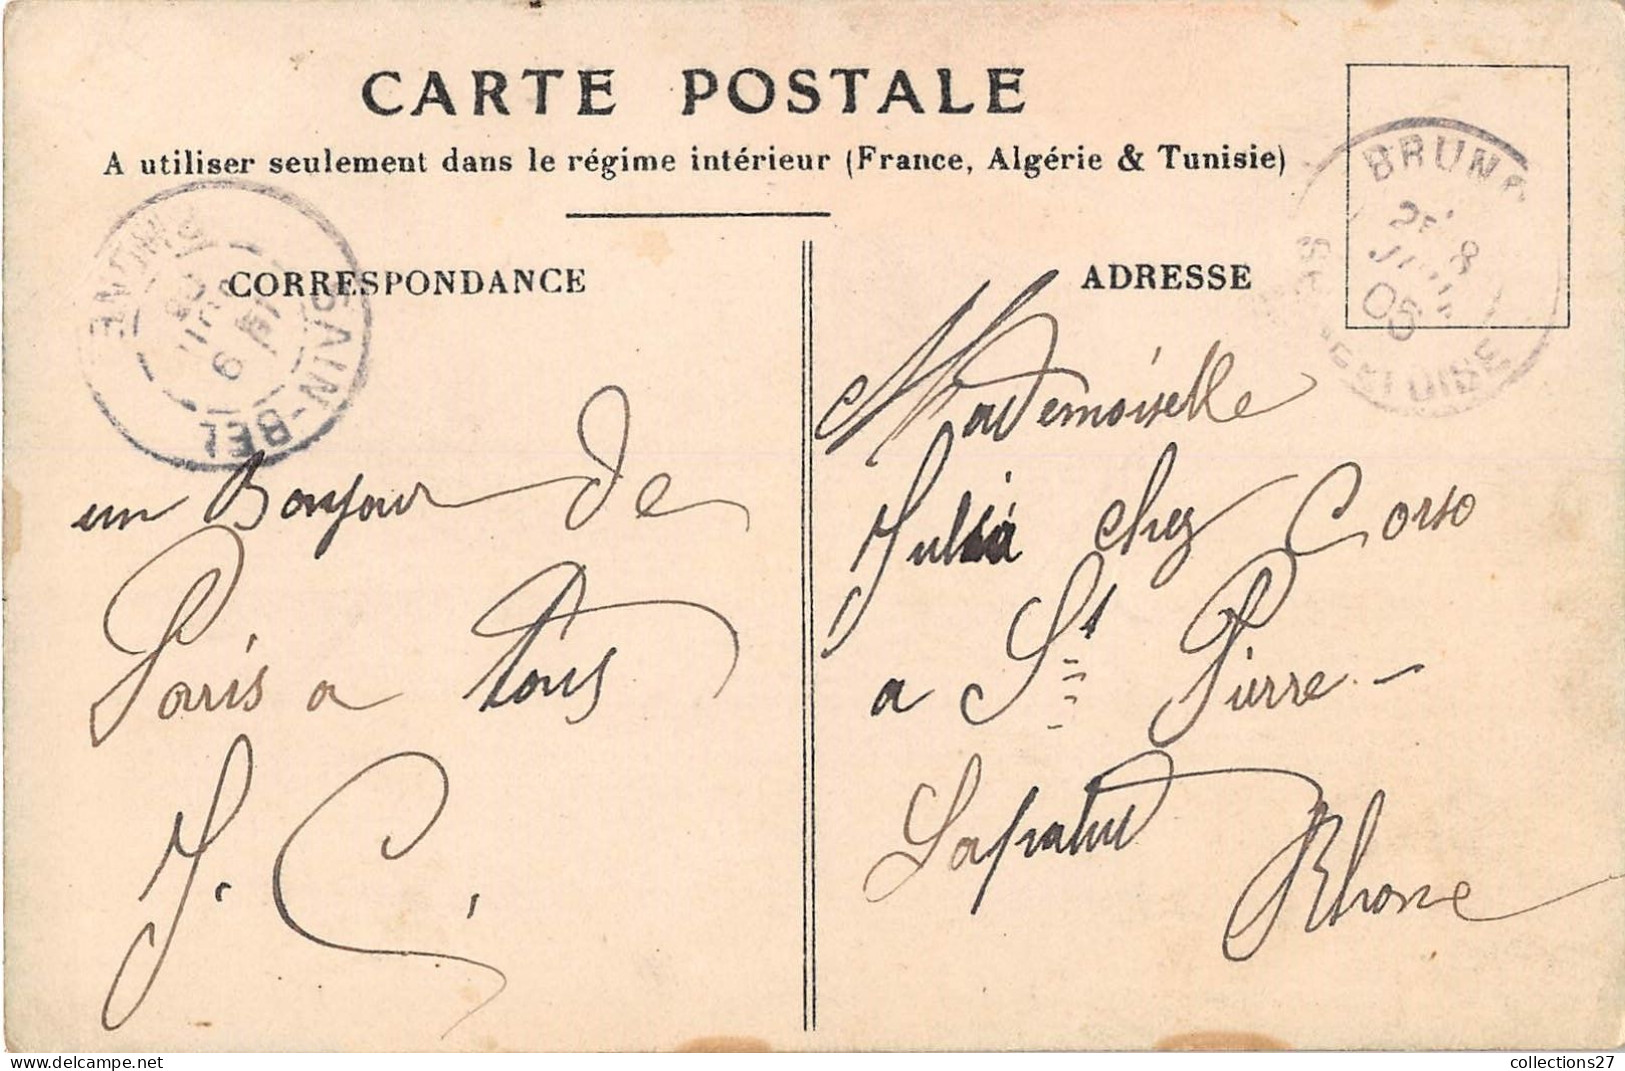 CARTE POSTALE
A utiliser seulement dans le régime intérieur (France, Algérie & Tunisie)
CORRESPONDANCE
un Bonjour de
Paris a tous
J. C.
ADRESSE
Mademoiselle
Julia chez Corso
a St Pierre-
Lapalud
Rhone
SAIN-BEL
RHONE
BRUN
8
05
SEINE ET OISE
collections27